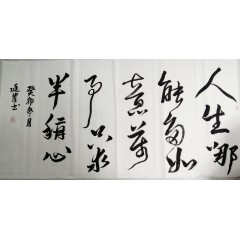 人生哪
能多如
意万
事只求
半称心
癸卯冬月